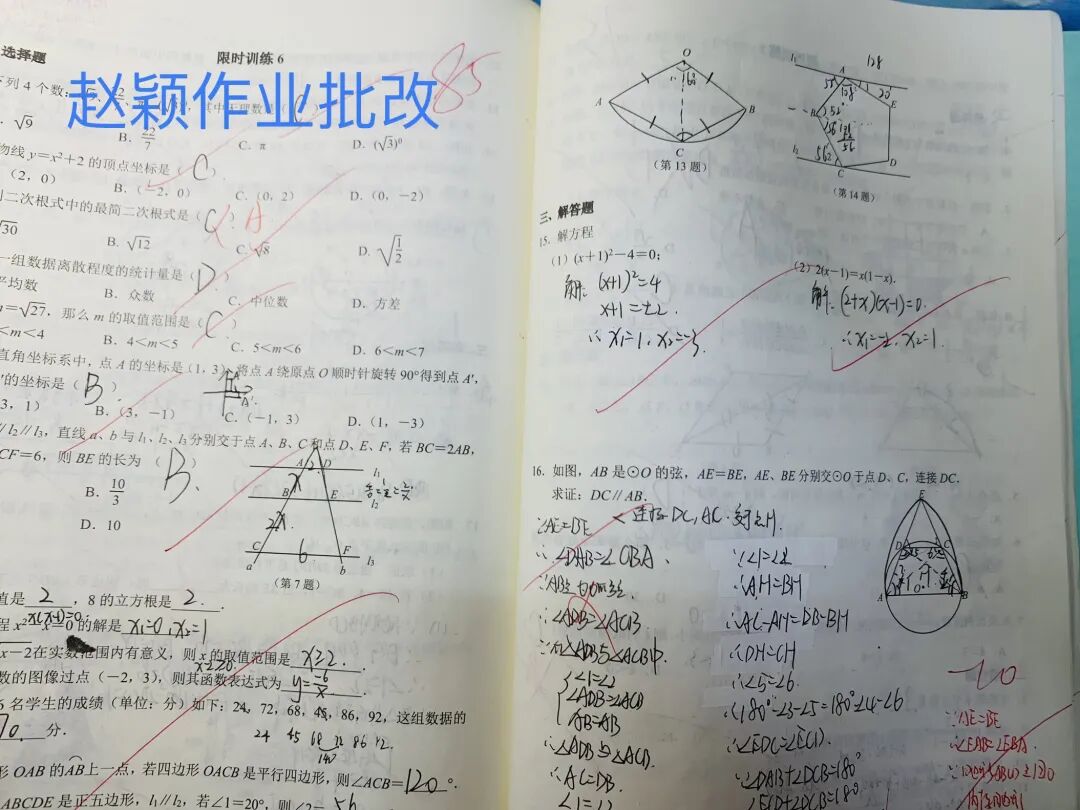 选择题
限时训练 6
85
下列4个数:
赵颖作业批改
√9
B. 22/7
C. π
D. (√3)⁰
物线 y=x²+2 的顶点坐标是( C ).
(2, 0)
B. (-2, 0)
C. (0, 2)
D. (0, -2)
二次根式中的最简二次根式是( C ). A
√30
B. √12
C. √8
D. √(1/2)
一组数据离散程度的统计量是( D ).
平均数
B. 众数
C. 中位数
D. 方差
=√27, 那么 m 的取值范围是( C )
<m<4
B. 4<m<5
C. 5<m<6
D. 6<m<7
直角坐标系中, 点 A 的坐标是(1, 3), 将点 A 绕原点 O 顺时针旋转 90°得到点 A′,
′的坐标是( B ).
3, 1)
B. (3, -1)
C. (-1, 3)
D. (1, -3)
∥l₂∥l₃, 直线 a、b 与 l₁、l₂、l₃ 分别交于点 A、B、C 和点 D、E、F, 若 BC=2AB,
CF=6, 则 BE 的长为 ( B )
B. 10/3
D. 10
A
2
D
l₁
x
B
E
l₂
2x
C
6
F
l₃
a
b
(第 7 题)
值是 2 , 8 的立方根是 2 .
x(x-1)=0
程 x²-x=0 的解是 x₁=0, x₂=1
x-2 在实数范围内有意义, 则 x 的取值范围是 x≥2 .
数的图像过点(-2, 3), 则其函数表达式为 y=-6/x .
6 名学生的成绩(单位: 分)如下: 24, 72, 68, 45, 86, 92, 这组数据的
70 分.
24 45 68 72 86 92
140
形 OAB 的AB上一点, 若四边形 OACB 是平行四边形, 则∠ACB= 120 °.
ABCDE 是正五边形, l₁∥l₂, 若∠1=20°, 则∠2= 56
O
A
B
C
(第 13 题)
l₁
A
128
108
20
E
B
52°
56
C
D
l₂
(第 14 题)
三、解答题
15. 解方程
(1) (x+1)²-4=0;
(2) 2(x-1)=x(1-x).
解: (x+1)²=4
解: (2+x)(x-1)=0.
x+1=±2.
∴x₁=1, x₂=-3.
∴x₁=-2, x₂=1.
16. 如图, AB 是⊙O 的弦, AE=BE, AE、BE 分别交⊙O 于点 D、C, 连接 DC.
求证: DC∥AB.
∵AE=BE
∴∠DAB=∠CBA.
∴∠ADB=∠ACB
{∠1=∠2
∠ADB=∠ACB
AB=AB
∴AC=DB.
∴∠1=∠2
∵∠1=∠2
∴AH=BH
∴AC-AH=DB-BH
∴DH=CH
∴∠5=∠6.
∴180°-∠3-∠5=180°-∠4-∠6
∴∠EDC=∠ECD.
∴∠DAB+∠DCB=180°
E
D
C
A
B
-10
∵AE=BE
∴∠EAB=∠EBA.